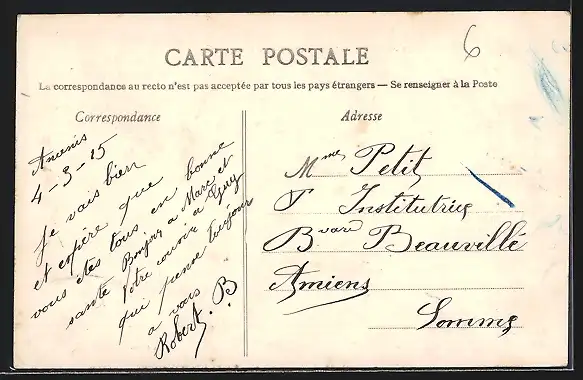 6
CARTE POSTALE
La correspondance au recto n'est pas acceptée par tous les pays étrangers — Se renseigner à la Poste
Correspondance
Adresse
Ancenis
4-3-25
Je vais bien
et espère que
vous êtes tous en bonne
santé Bonjour a Marc et
votre a Guy
qui pense toujours
a vous
Robert. B
Mme Petit
Institutrice
Bvard Beauvillé
Amiens
Somme